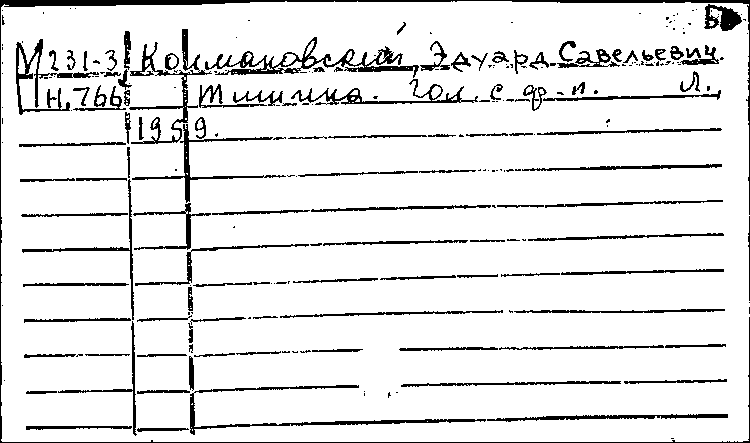 М 231-3 Колмановский, Эдуард Савельевич.
Н.766 Тишина. Гол. с ф-п. Л.,
1959.